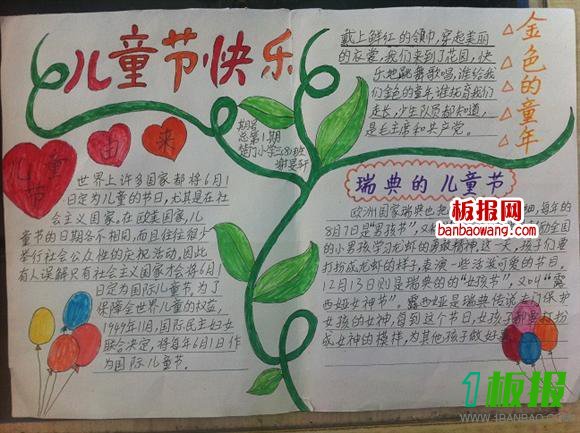 儿童节快乐
戴上鲜红的领巾,穿起美丽
的衣裳,我们来到了花园,快
乐地跳舞歌唱,谁给我
们金色的童年,谁抚育我们
走长,少年队员都知道,
是毛主席和共产党。
金色的童年
期号
总第1期
儿童
节
由
来
世界上许多国家都将6月1
日定为儿童的节日,尤其是在社
会主义国家。在欧美国家,儿
童节的日期各不相同,而且往往很少
举行社会公众性的庆祝活动,因此
有人误解只有社会主义国家才会将6月1
日定为国际儿童节。为了
保障全世界儿童的权益,
1949年11月,国际民主妇女
联合会决定,将每年6月1日作
为国际儿童节。
瑞典的儿童节
欧洲国家瑞典也把
细,每年的
8月7日是“男孩节”,又
全国
的小男孩学习龙虾的勇敢精神。这一天,孩子们要
打扮成龙虾的样子,表演一些活泼可爱的节目。
12月13日则是瑞典的的“女孩节”,又叫“露
西娅女神节”。露西娅是瑞典传说专门保护
女孩的女神,每到这个节日,女孩子都要打扮
成女神的模样,为其他孩子做好事
板报网
banbaowang.com
1板报
WWW.1BANBAO.COM